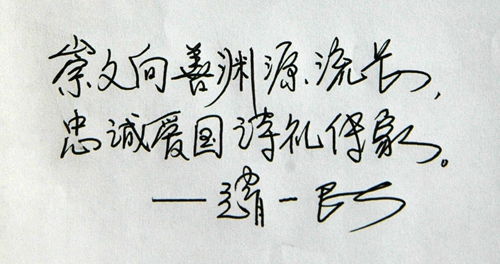 崇文向善渊源流长,
忠诚爱国诗礼传家。
——赵一